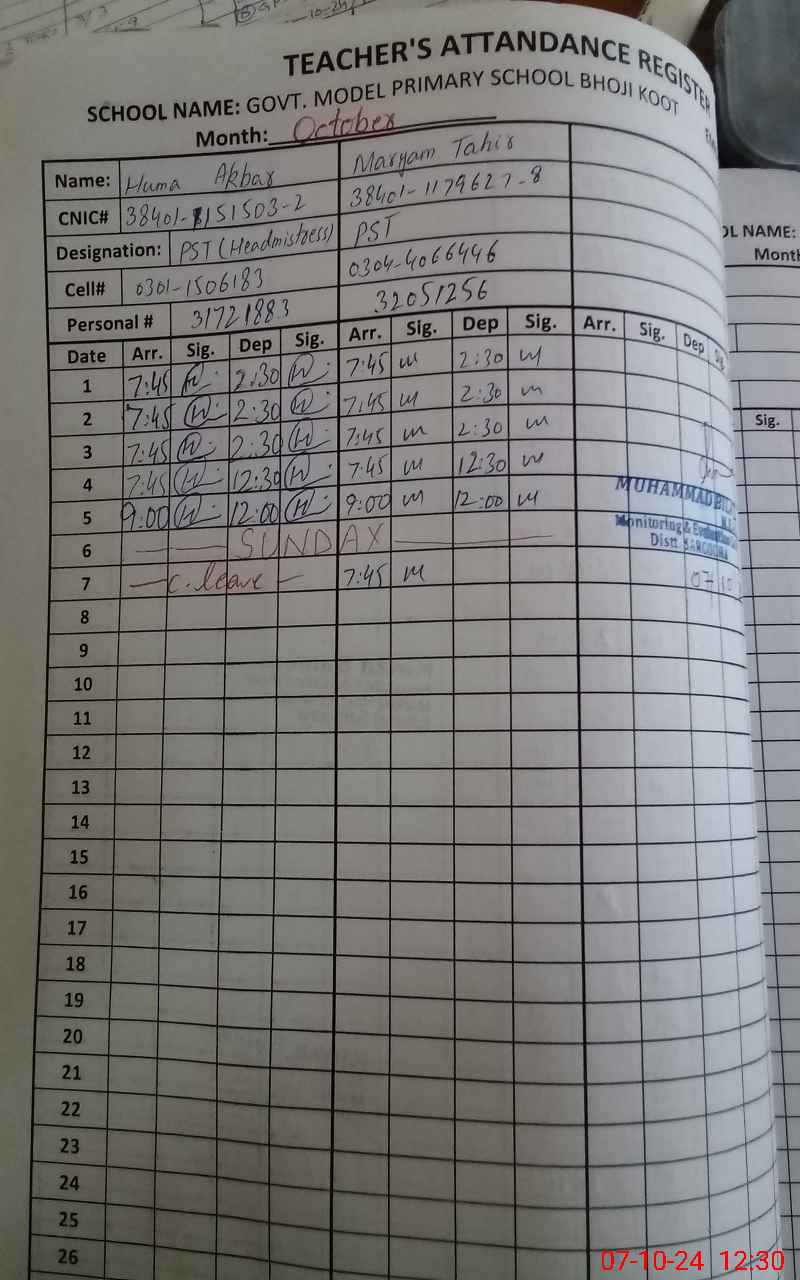 TEACHER'S ATTANDANCE REGISTER
SCHOOL NAME: GOVT. MODEL PRIMARY SCHOOL BHOJI KOOT
Month: October
Name: Huma Akbar Maryam Tahir
CNIC# 38401-8151503-2 38401-1179627-8
Designation: PST (Headmistress) PST
Cell# 0301-1506183 0304-4066446
Personal # 31721883 32051256
Date Arr. Sig. Dep Sig. Arr. Sig. Dep Sig. Arr. Sig. Dep Sig.
1 7:45 H 2:30 H 7:45 m 2:30 m
2 7:45 H 2:30 H 7:45 m 2:30 m
3 7:45 H 2:30 H 7:45 m 2:30 m
4 7:45 H 12:30 H 7:45 m 12:30 m
5 9:00 H 12:00 H 9:00 m 12:00 m
MUHAMMAD
Monitoring &
Distt. SARGODHA
6 SUNDAY
7 C. leave 7:45 m 07
8
9
10
11
12
13
14
15
16
17
18
19
20
21
22
23
24
25
26
NAME:
Month
Sig.
07-10-24 12:30